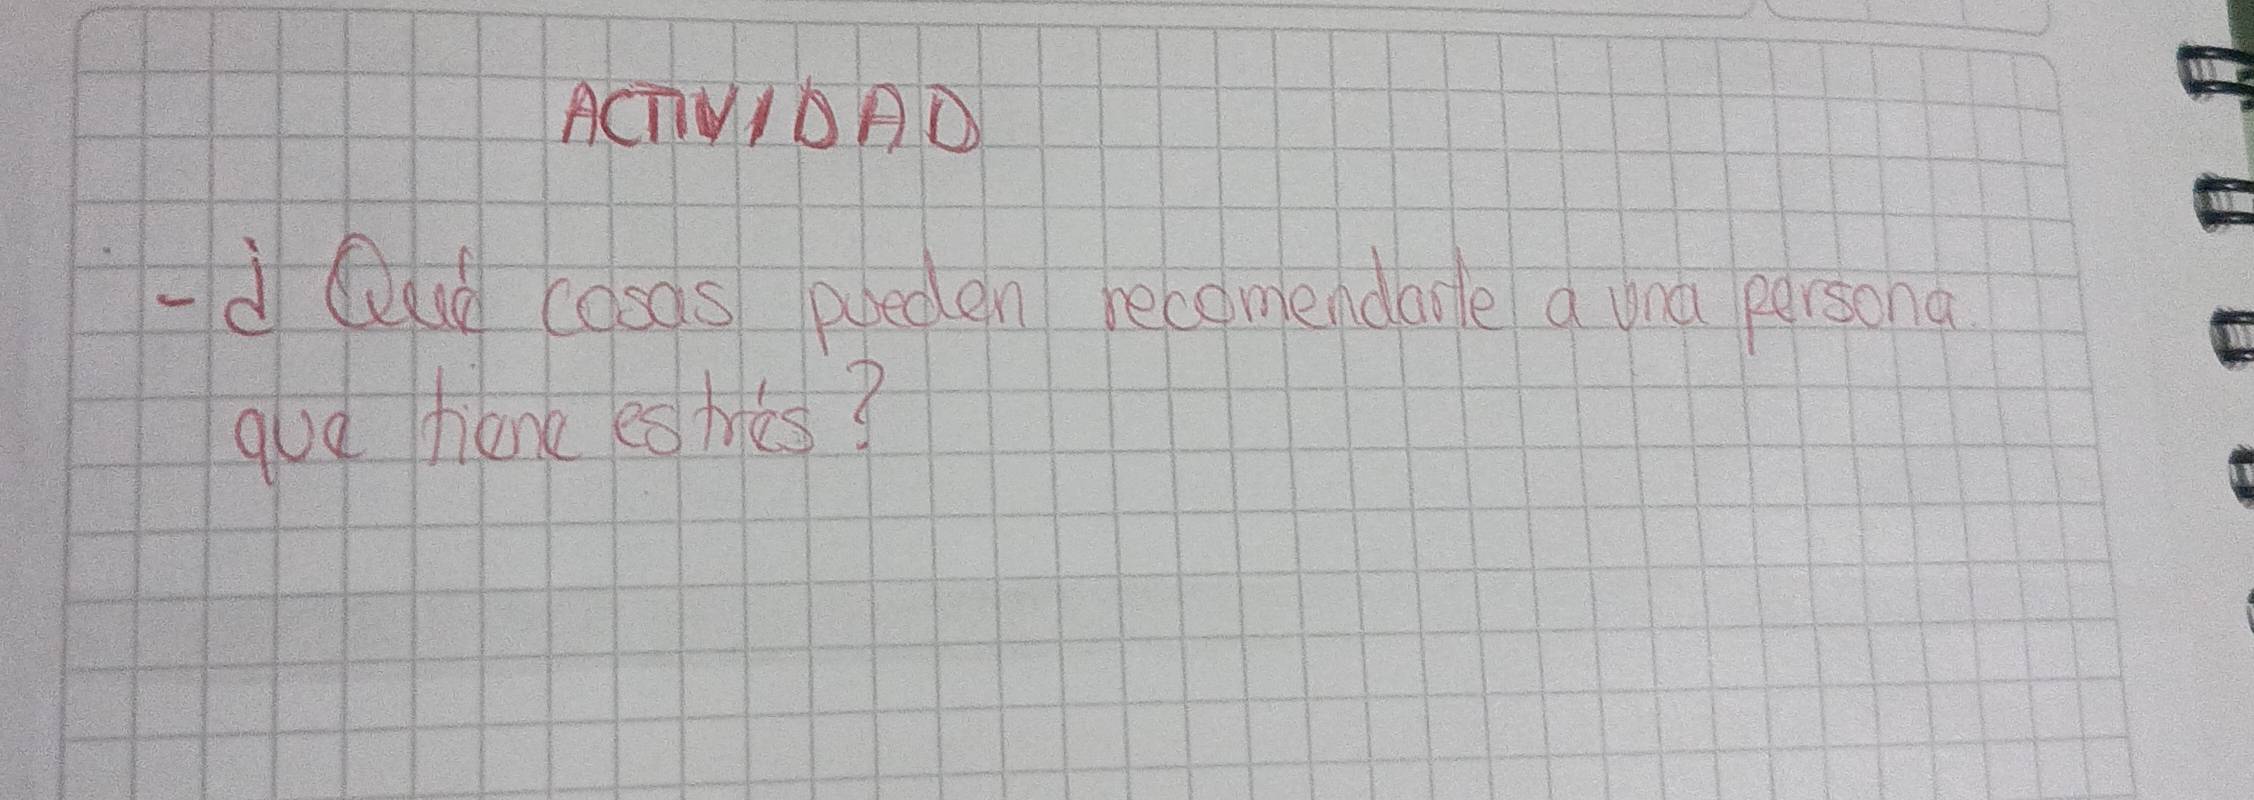 ACTIVIDAD
- ¿Qué cosas pueden recomendarle a una persona
que tiene estrés?